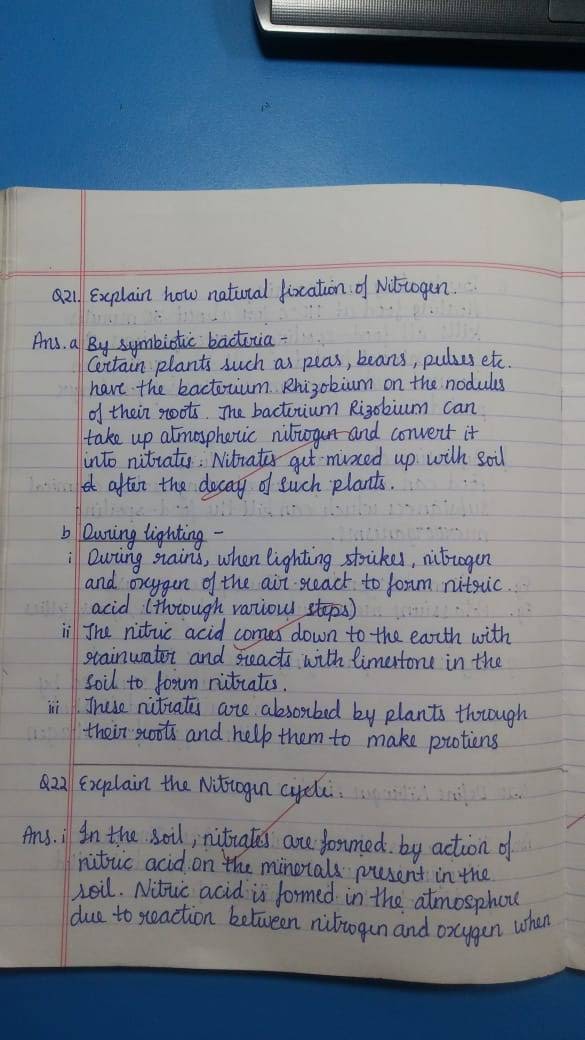 Q21. Explain how natural fixation of Nitrogen.
Ans. a By symbiotic bacteria -
Certain plants such as peas, beans, pulses etc.
have the bacterium Rhizobium on the nodules
of their roots. The bacterium Rizobium can
take up atmospheric nitrogen and convert it
into nitrates. Nitrates get mixed up with soil
after the decay of such plants.
b During lighting -
i During rains, when lighting strikes, nitrogen
and oxygen of the air react to form nitric
acid (through various steps)
ii The nitric acid comes down to the earth with
rainwater and reacts with limestone in the
soil to form nitrates.
iii These nitrates are absorbed by plants through
their roots and help them to make protiens
Q22 Explain the Nitrogen cycle.
Ans. i In the soil, nitrates are formed by action of
nitric acid on the minerals present in the
soil. Nitric acid is formed in the atmosphere
due to reaction between nitrogen and oxygen when